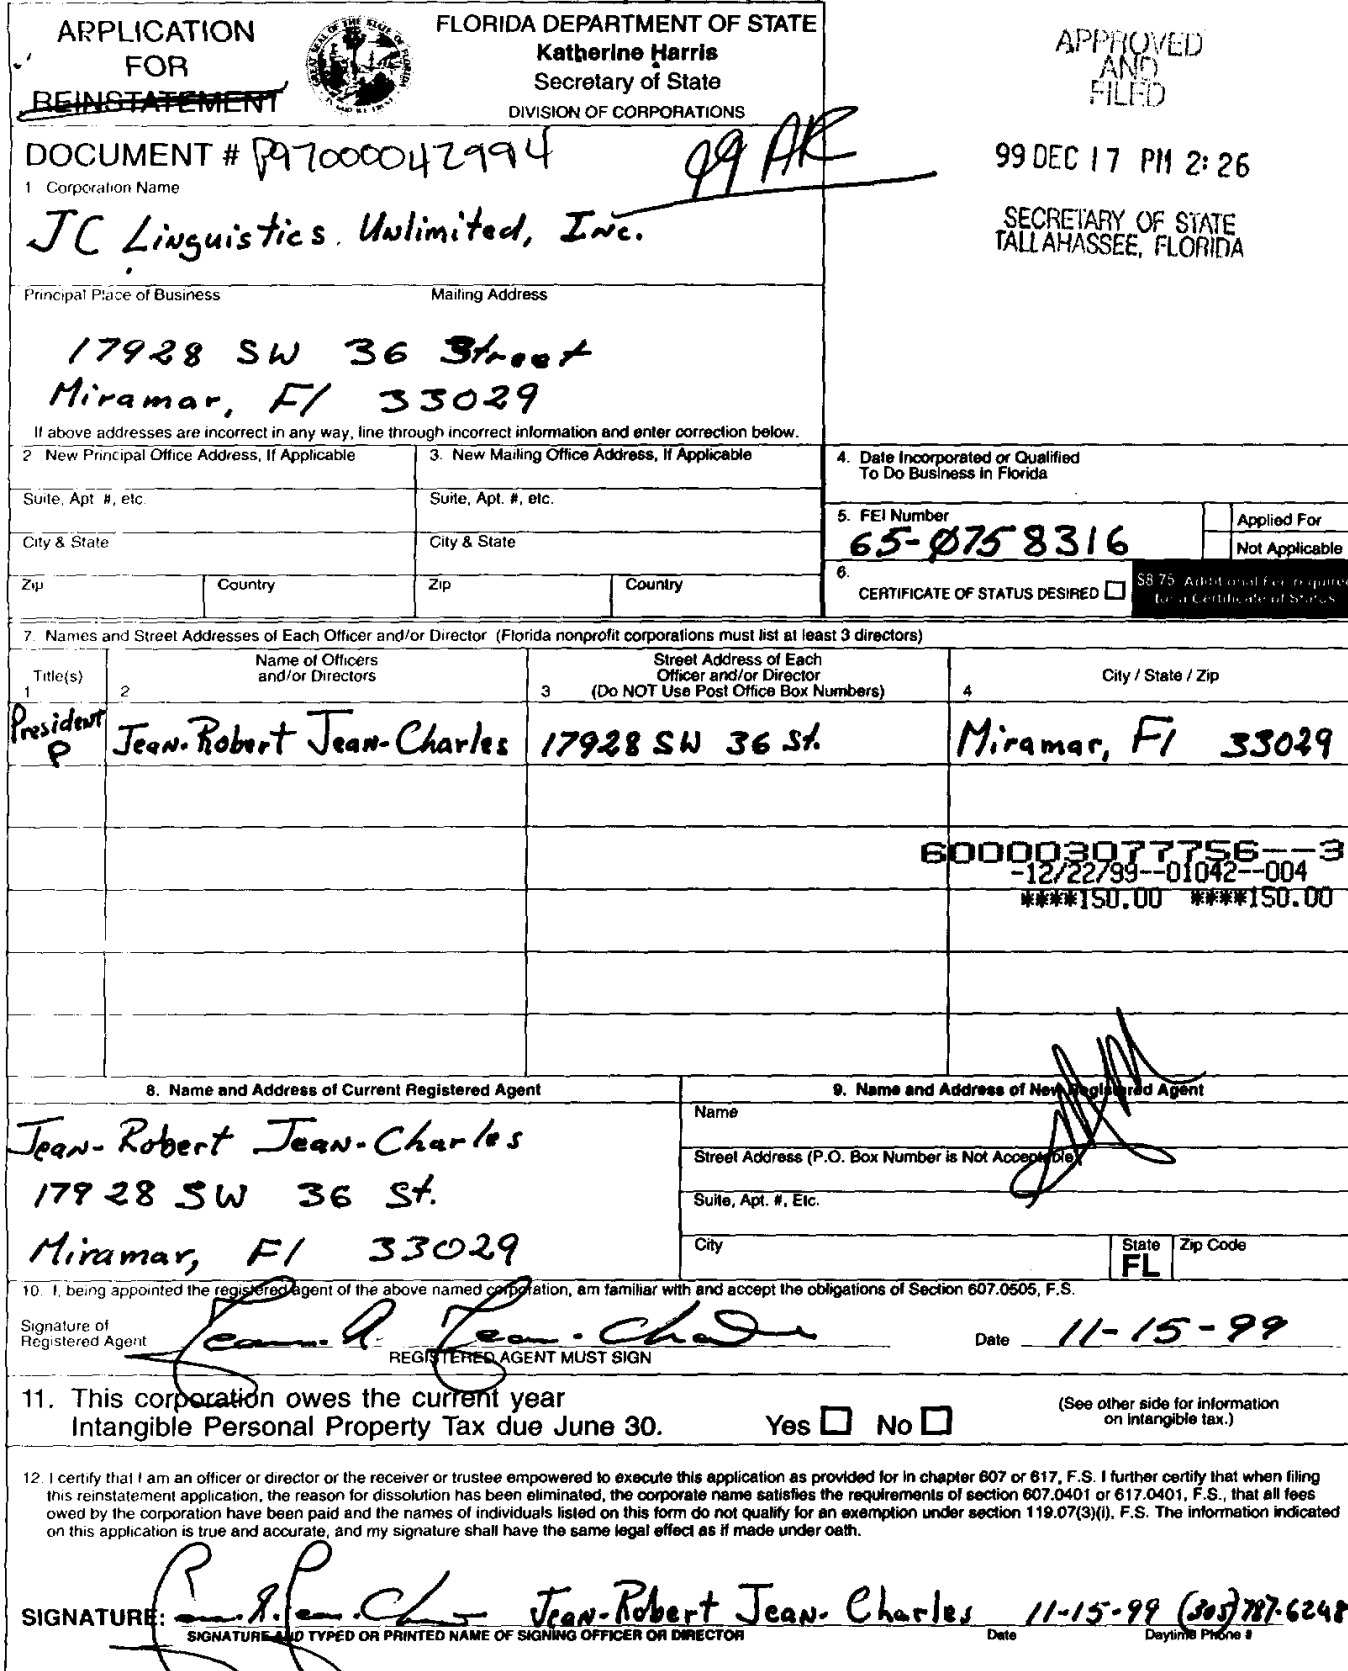 APPLICATION
FOR
REINSTATEMENT
FLORIDA DEPARTMENT OF STATE
Katherine Harris
Secretary of State
DIVISION OF CORPORATIONS
APPROVED
AND
FILED
99 DEC 17 PM 2:26
SECRETARY OF STATE
TALLAHASSEE, FLORIDA
DOCUMENT # P97000042994
99 AR
1 Corporation Name
JC Linguistics Unlimited, Inc.
Principal Place of Business Mailing Address
17928 SW 36 Street
Miramar, Fl 33029
If above addresses are incorrect in any way, line through incorrect information and enter correction below.
2 New Principal Office Address, If Applicable
3. New Mailing Office Address, If Applicable
4. Date Incorporated or Qualified
To Do Business in Florida
Suite, Apt #, etc.
Suite, Apt. #, etc.
5. FEI Number
65-0758316
Applied For
Not Applicable
City & State
City & State
Zip Country
Zip Country
6.
CERTIFICATE OF STATUS DESIRED
$8.75 Additional Fee required
for a Certificate of Status
7. Names and Street Addresses of Each Officer and/or Director (Florida nonprofit corporations must list at least 3 directors)
Title(s)
1
Name of Officers
and/or Directors
2
Street Address of Each
Officer and/or Director
3 (Do NOT Use Post Office Box Numbers)
City / State / Zip
4
President
P
Jean-Robert Jean-Charles
17928 SW 36 St.
Miramar, Fl 33029
600003077756--3
-12/22/99--01042--004
****150.00 ****150.00
8. Name and Address of Current Registered Agent
Jean-Robert Jean-Charles
17928 SW 36 St.
Miramar, Fl 33029
9. Name and Address of New Registered Agent
Name
Street Address (P.O. Box Number is Not Acceptable)
Suite, Apt. #, Etc.
City
State
FL
Zip Code
10. I, being appointed the registered agent of the above named corporation, am familiar with and accept the obligations of Section 607.0505, F.S.
Signature of
Registered Agent
Jean-R. Jean-Charles
Date 11-15-99
REGISTERED AGENT MUST SIGN
11. This corporation owes the current year
Intangible Personal Property Tax due June 30.
Yes No
(See other side for information
on intangible tax.)
12. I certify that I am an officer or director or the receiver or trustee empowered to execute this application as provided for in chapter 607 or 617, F.S. I further certify that when filing
this reinstatement application, the reason for dissolution has been eliminated, the corporate name satisfies the requirements of section 607.0401 or 617.0401, F.S., that all fees
owed by the corporation have been paid and the names of individuals listed on this form do not qualify for an exemption under section 119.07(3)(i), F.S. The information indicated
on this application is true and accurate, and my signature shall have the same legal effect as if made under oath.
SIGNATURE: Jean-Robert Jean-Charles 11-15-99 (305)787-6248
SIGNATURE AND TYPED OR PRINTED NAME OF SIGNING OFFICER OR DIRECTOR Date Daytime Phone #